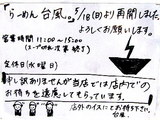 『らーめん 台風』5/18(日)より再開しました。
よろしくお願いします。
営業時間 11:00~15:00
(スープの切れ次第終了)
定休日(水曜日)
申し訳ありませんが当店では店内での
お待ちを遠慮してもらっています。
店外のイスにてお待ち下さい。
台風